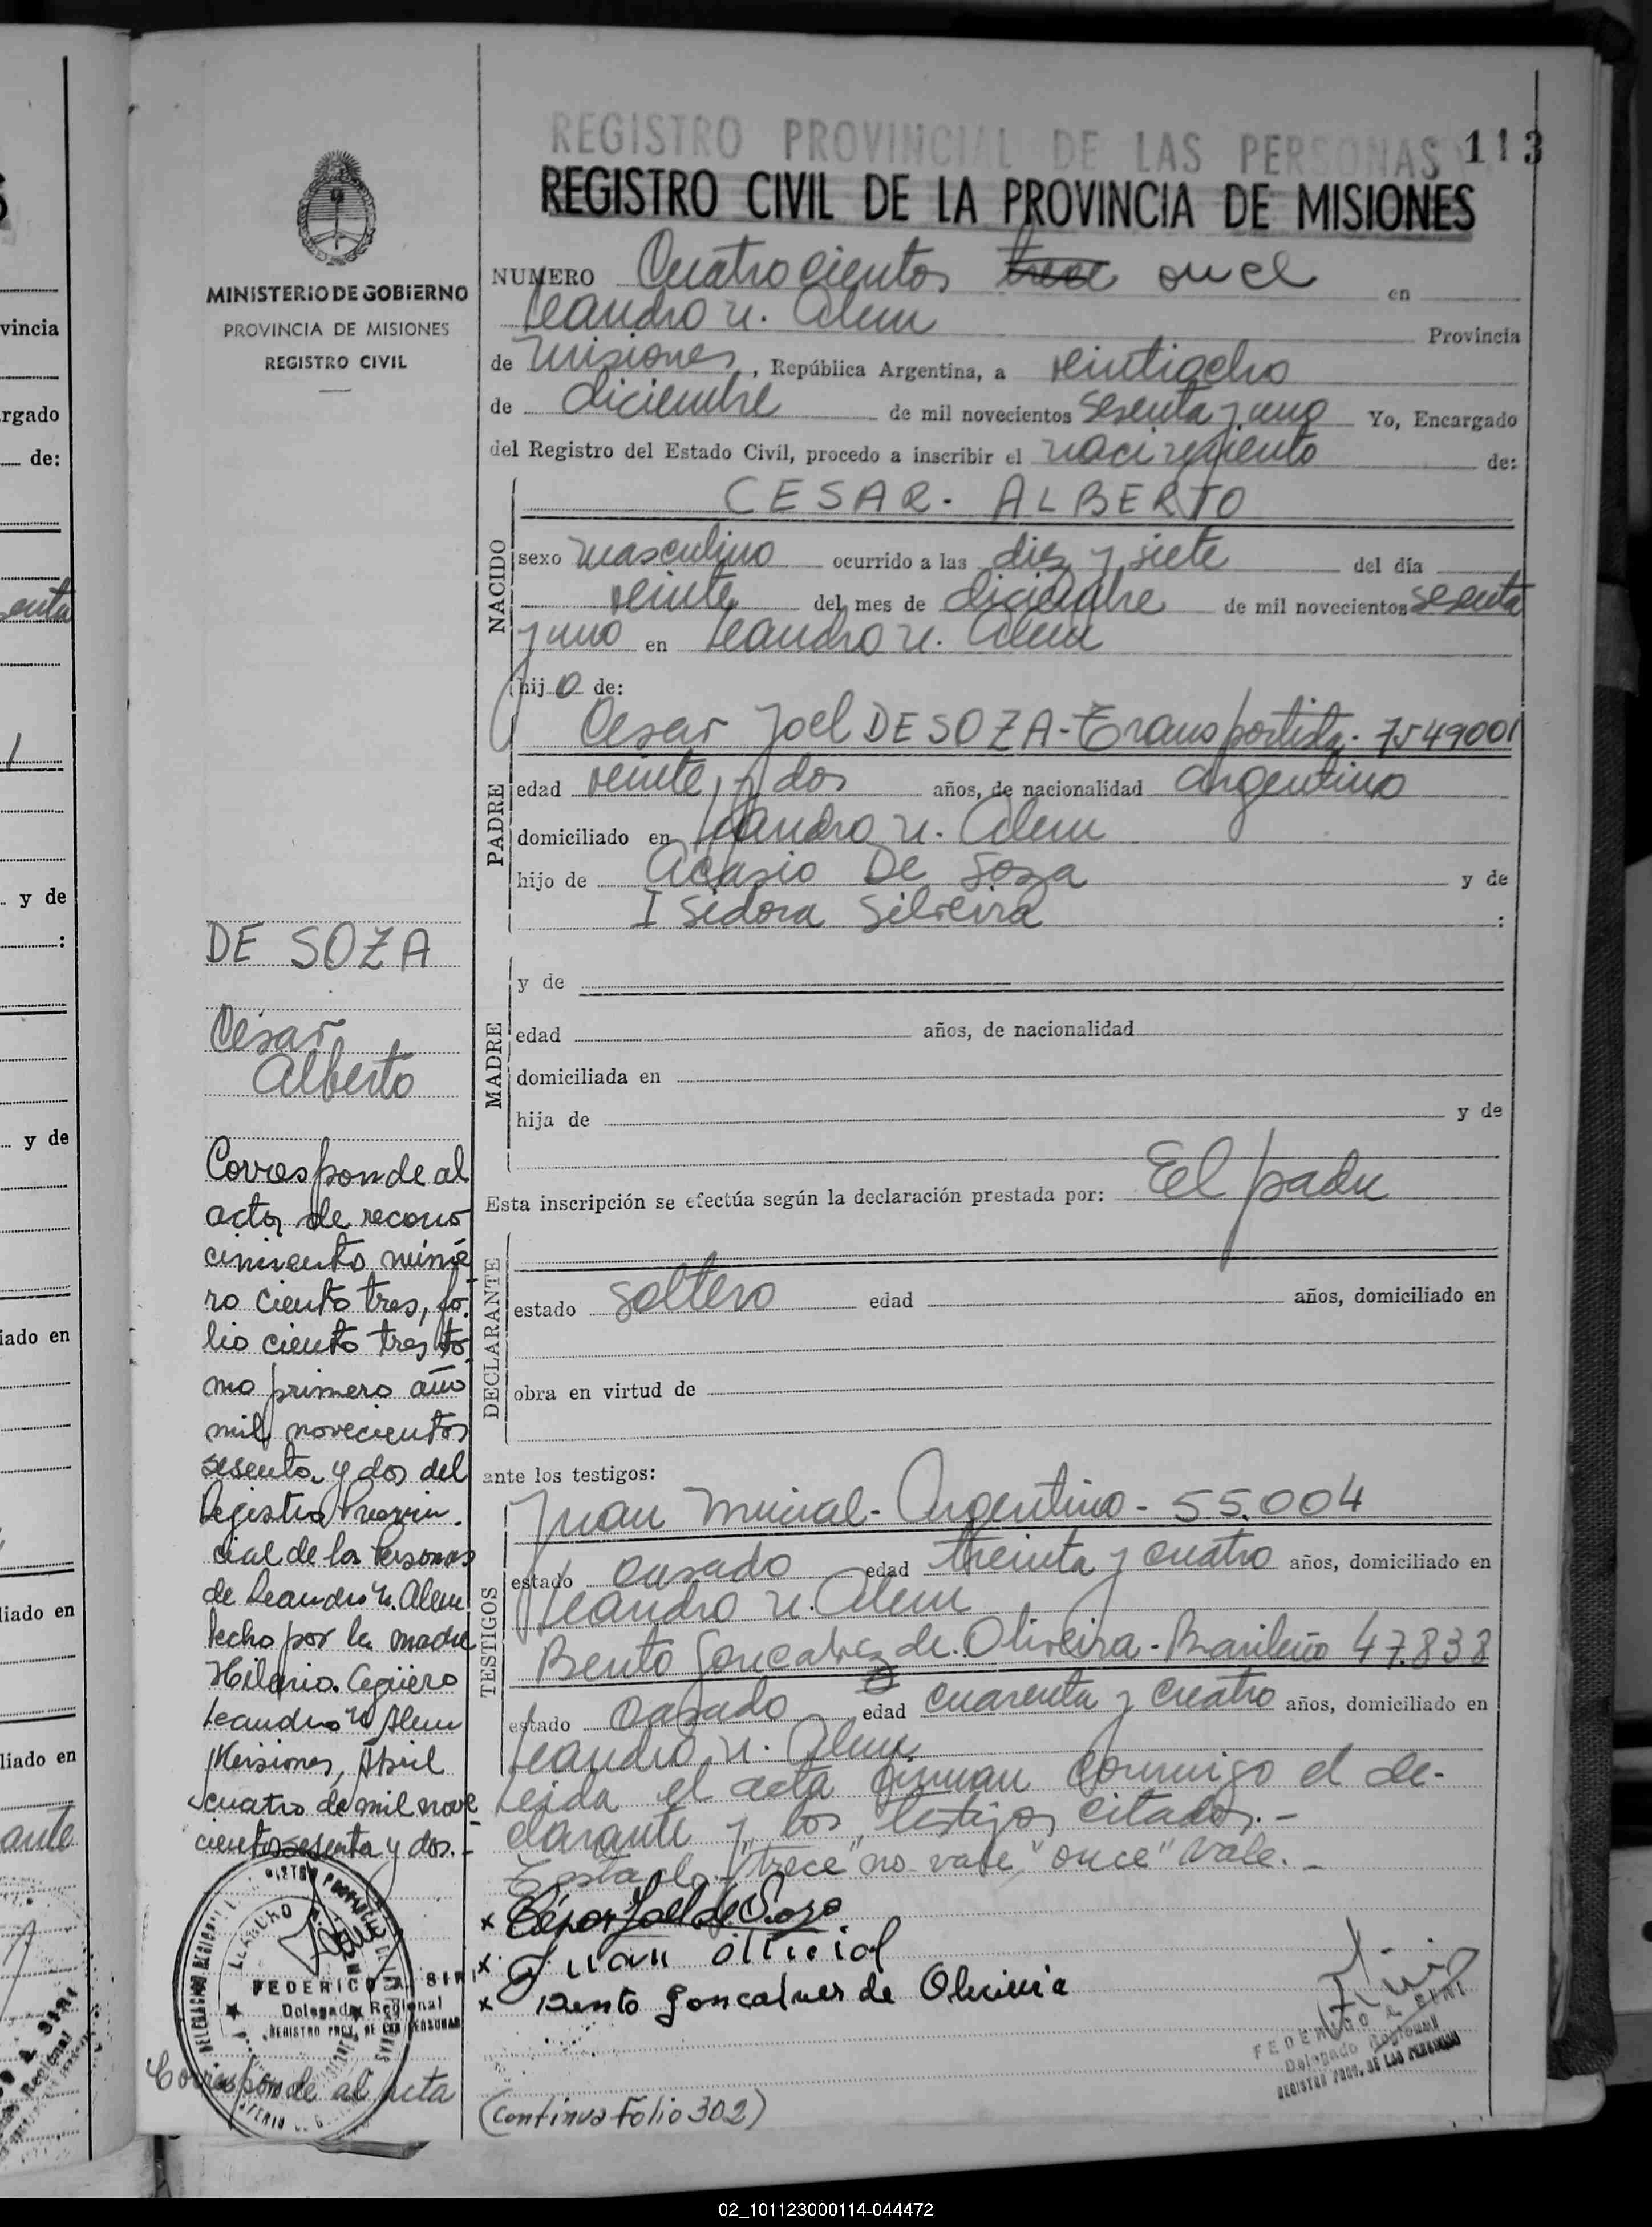 REGISTRO PROVINCIAL DE LAS PERSONAS
113
REGISTRO CIVIL DE LA PROVINCIA DE MISIONES
MINISTERIO DE GOBIERNO
PROVINCIA DE MISIONES
REGISTRO CIVIL
NUMERO Cuatrocientos trece once en
Leandro N. Alem Provincia
de Misiones, República Argentina, a veintiocho
de diciembre de mil novecientos sesenta y uno Yo, Encargado
del Registro del Estado Civil, procedo a inscribir el nacimiento de:
NACIDO
CESAR - ALBERTO
sexo masculino ocurrido a las diez y siete del día
veinte del mes de diciembre de mil novecientos sesenta
y uno en Leandro N. Alem
hijo de:
PADRE
Cesar Joel DE SOZA - Transportista - 7549001
edad veinte y dos años, de nacionalidad argentino
domiciliado en Leandro N. Alem
hijo de Acasio De Soza y de
Isidora Silveira :
MADRE
y de
edad años, de nacionalidad
domiciliada en
hija de y de
Esta inscripción se efectúa según la declaración prestada por: El padre
DECLARANTE
estado soltero edad años, domiciliado en
obra en virtud de
ante los testigos:
TESTIGOS
Juan - Argentino - 55.004
estado casado edad treinta y cuatro años, domiciliado en
Leandro N. Alem
Bento Goncalvez de Oliveira - Brasileño 47.838
estado casado edad cuarenta y cuatro años, domiciliado en
Leandro N. Alem
Leida el acta firman conmigo el de-
clarante y los testigos citados. -
"trece" no vale "once" vale. -
x César Joel de Soza
x Juan
x Bento Goncalves de Oliveira
(Continua Folio 302)
DE SOZA
Cesar
Alberto
Corresponde al
acta de recono
cimiento núme
ro ciento tres, fo-
lio ciento tres to-
mo primero año
mil novecientos
sesenta y dos del
Registro Provin-
cial de las Personas
de Leandro N. Alem
hecho por la madre
Hilaria Agüero
Leandro N Alem
Misiones, Abril
cuatro de mil nove
cientos sesenta y dos. -
FEDERICO A. SIRI
Delegado Regional
REGISTRO PROV. DE LAS PERSONAS
Corresponde al acta
FEDERICO A. SIRI
Delegado Regional
REGISTRO PROV. DE LAS PERSONAS
vincia
rgado
de:
y de
:
y de
iado en
liado en
liado en
02_101123000114-044472